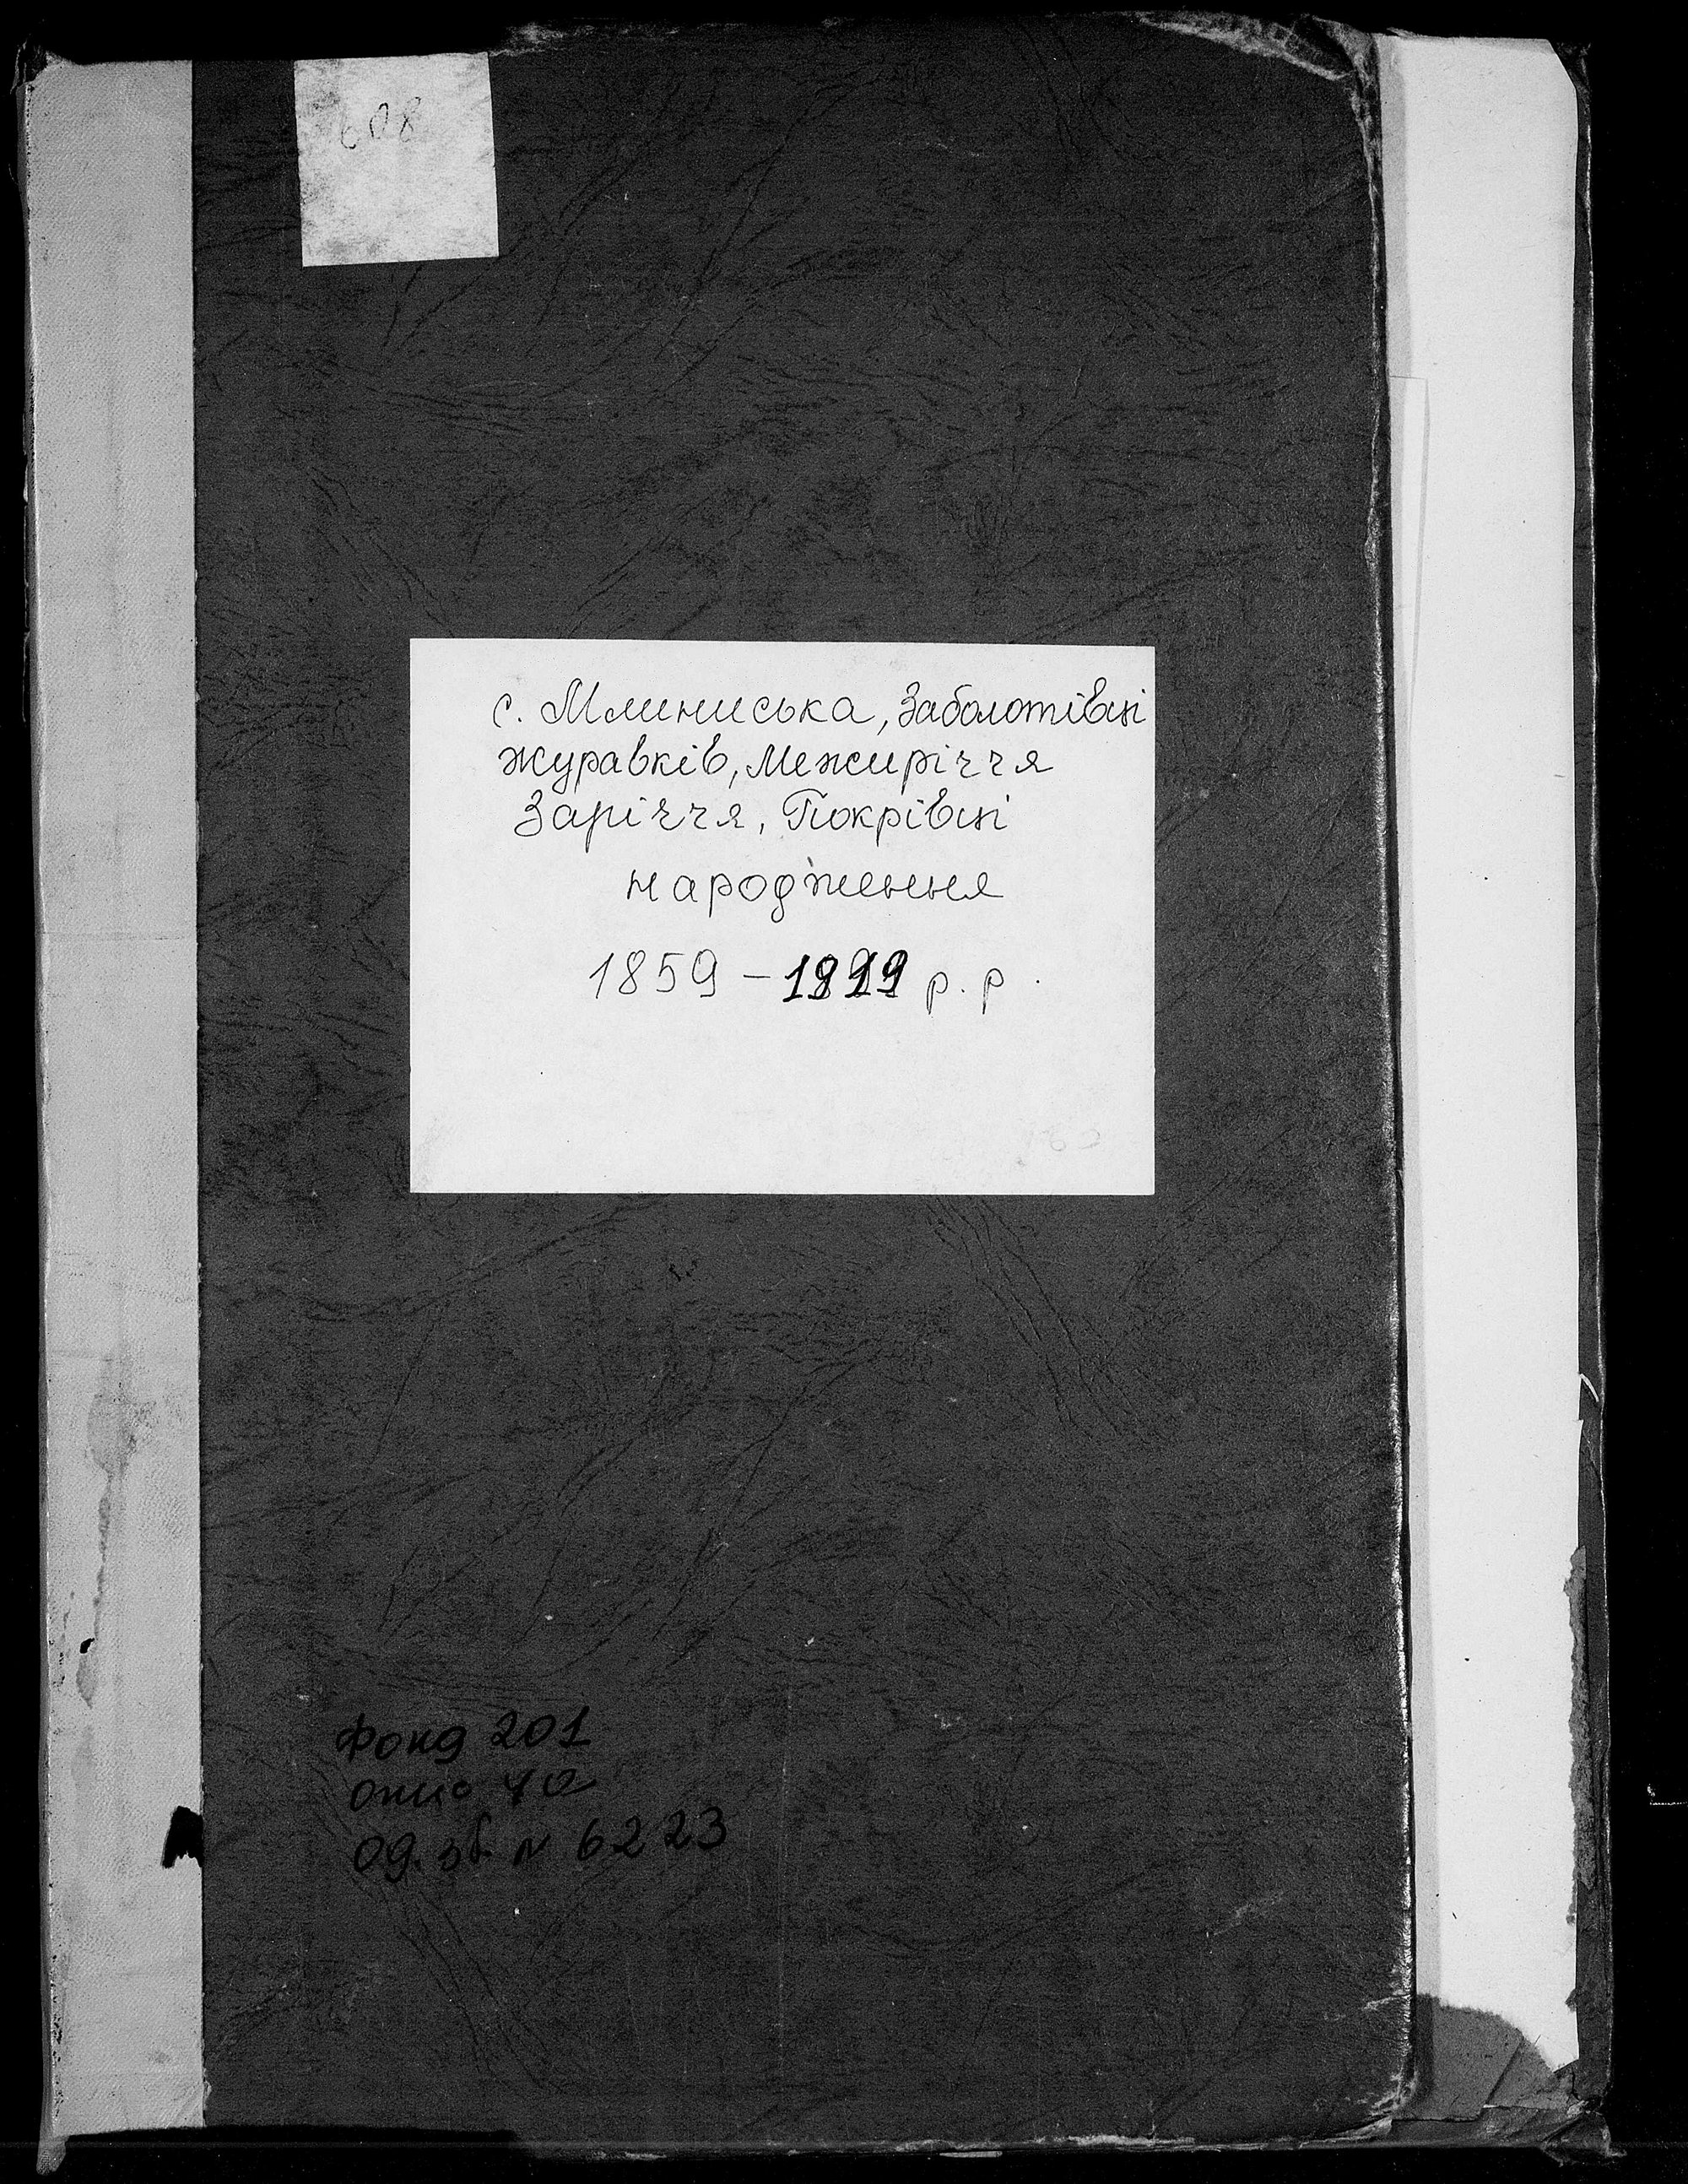 608
с. Млиниська, Заболотівці
Журавків, Межиріччя
Заріччя, Покрівці
народження
1859 – р. р.
Фонд 201
опис 4а
од. зб. № 6223